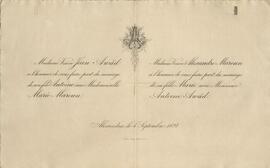 Madame Veuve Jean Awad
a l'honneur de vous faire part du mariage
de son fils Antoine avec Mademoiselle
Marie Maroun.
Madame Veuve Alexandre Maroun
a l'honneur de vous faire part du mariage
de sa fille Marie avec Monsieur
Antoine Awad.
Alexandrie le Septembre